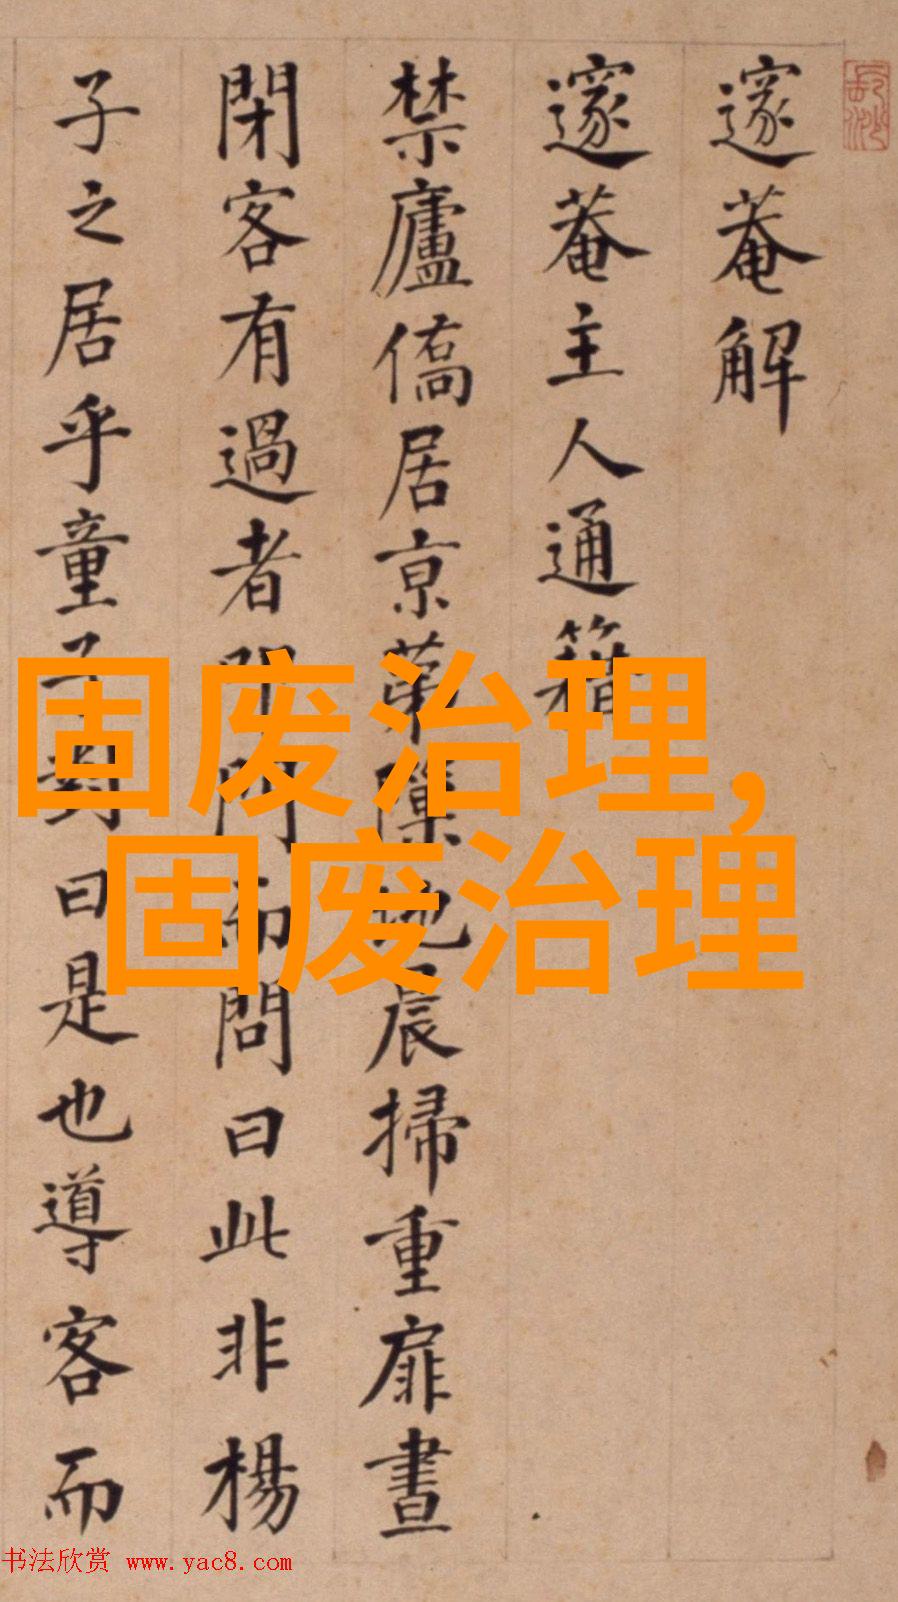 邃菴解
邃菴主人通籍
禁廬僑居京第隙地晨掃重扉晝
閉客有過者叩門而問曰此非楊
子之居乎童子對曰是也導客而
固废治理,
固废治理
书法欣赏 www.yac8.com